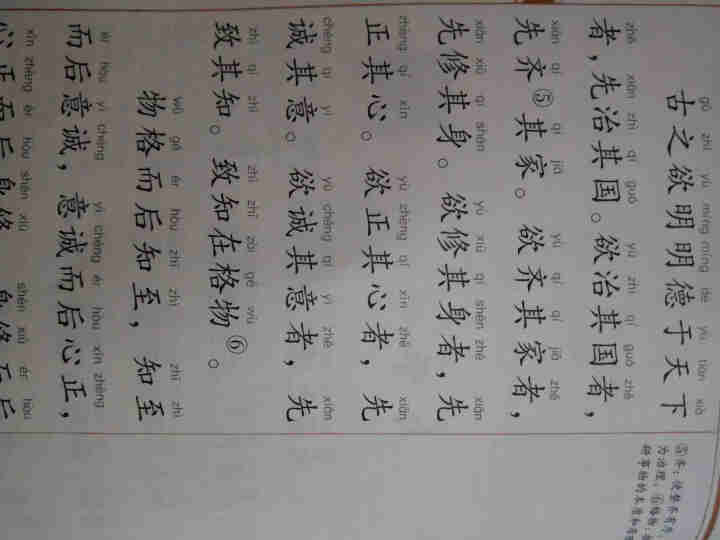 gǔ zhī yù míng míng dé yú tiān xià
古之欲明明德于天下
zhě xiān zhì qí guó yù zhì qí guó zhě
者，先治其国。欲治其国者，
xiān qí qí jiā yù qí qí jiā zhě
先齐⑤其家。欲齐其家者，
xiān xiū qí shēn yù xiū qí shēn zhě xiān
先修其身。欲修其身者，先
zhèng qí xīn yù zhèng qí xīn zhě xiān
正其心。欲正其心者，先
chéng qí yì yù chéng qí yì zhě xiān
诚其意。欲诚其意者，先
zhì qí zhī zhì zhī zài gé wù
致其知。致知在格物⑥。
wù gé ér hòu zhī zhì zhī zhì
物格而后知至，知至
ér hòu yì chéng yì chéng ér hòu xīn zhèng
而后意诚，意诚而后心正，
xīn zhèng ér hòu shēn xiū shēn xiū ér hòu
心正而后身修 身修而后
⑤齐：使整齐有序，
为治理。⑥格物：
种事物的本质和